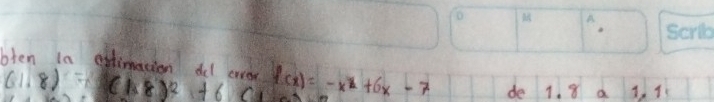 D M A
Scrib
bten la estimacion del error f(x) = -x² + 6x - 7 de 1.8 a 1.1
(1.8) = (1.8)² + 6 (